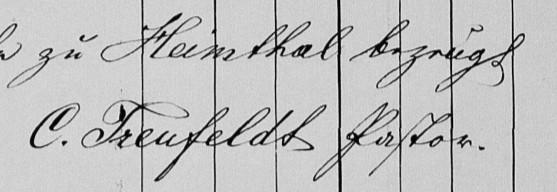 zu Heimthal bezeugt
C. Treufeldt Pastor.